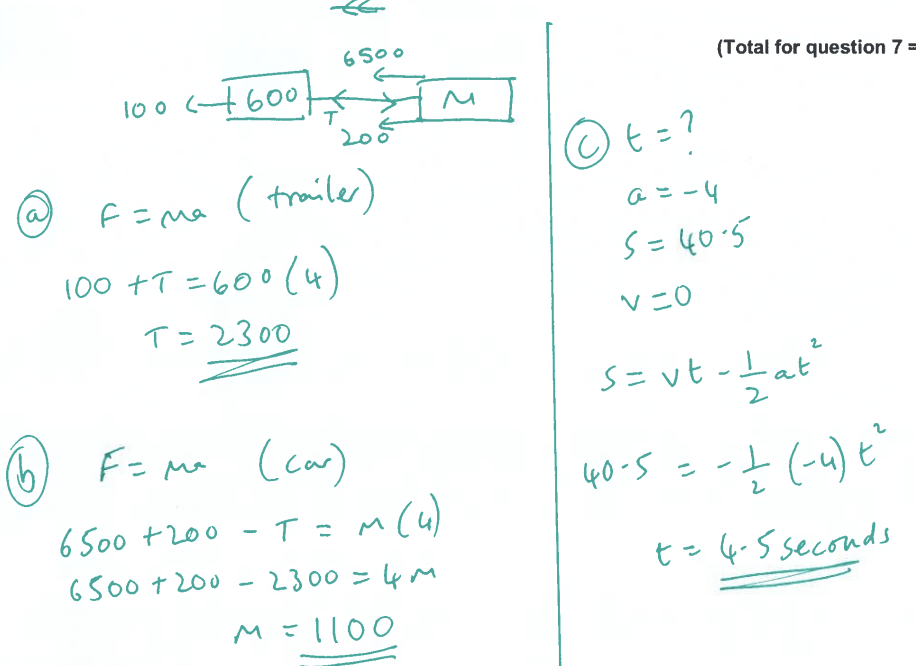 (Total for question 7 =
6500
100 600 M
T
200
ⓐ F = ma (trailer)
100 + T = 600(4)
T = 2300
ⓑ F = ma (car)
6500 + 200 - T = M(4)
6500 + 200 - 2300 = 4M
M = 1100
ⓒ t = ?
a = -4
S = 40.5
v = 0
S = vt - 1/2 at²
40.5 = - 1/2 (-4) t²
t = 4.5 seconds